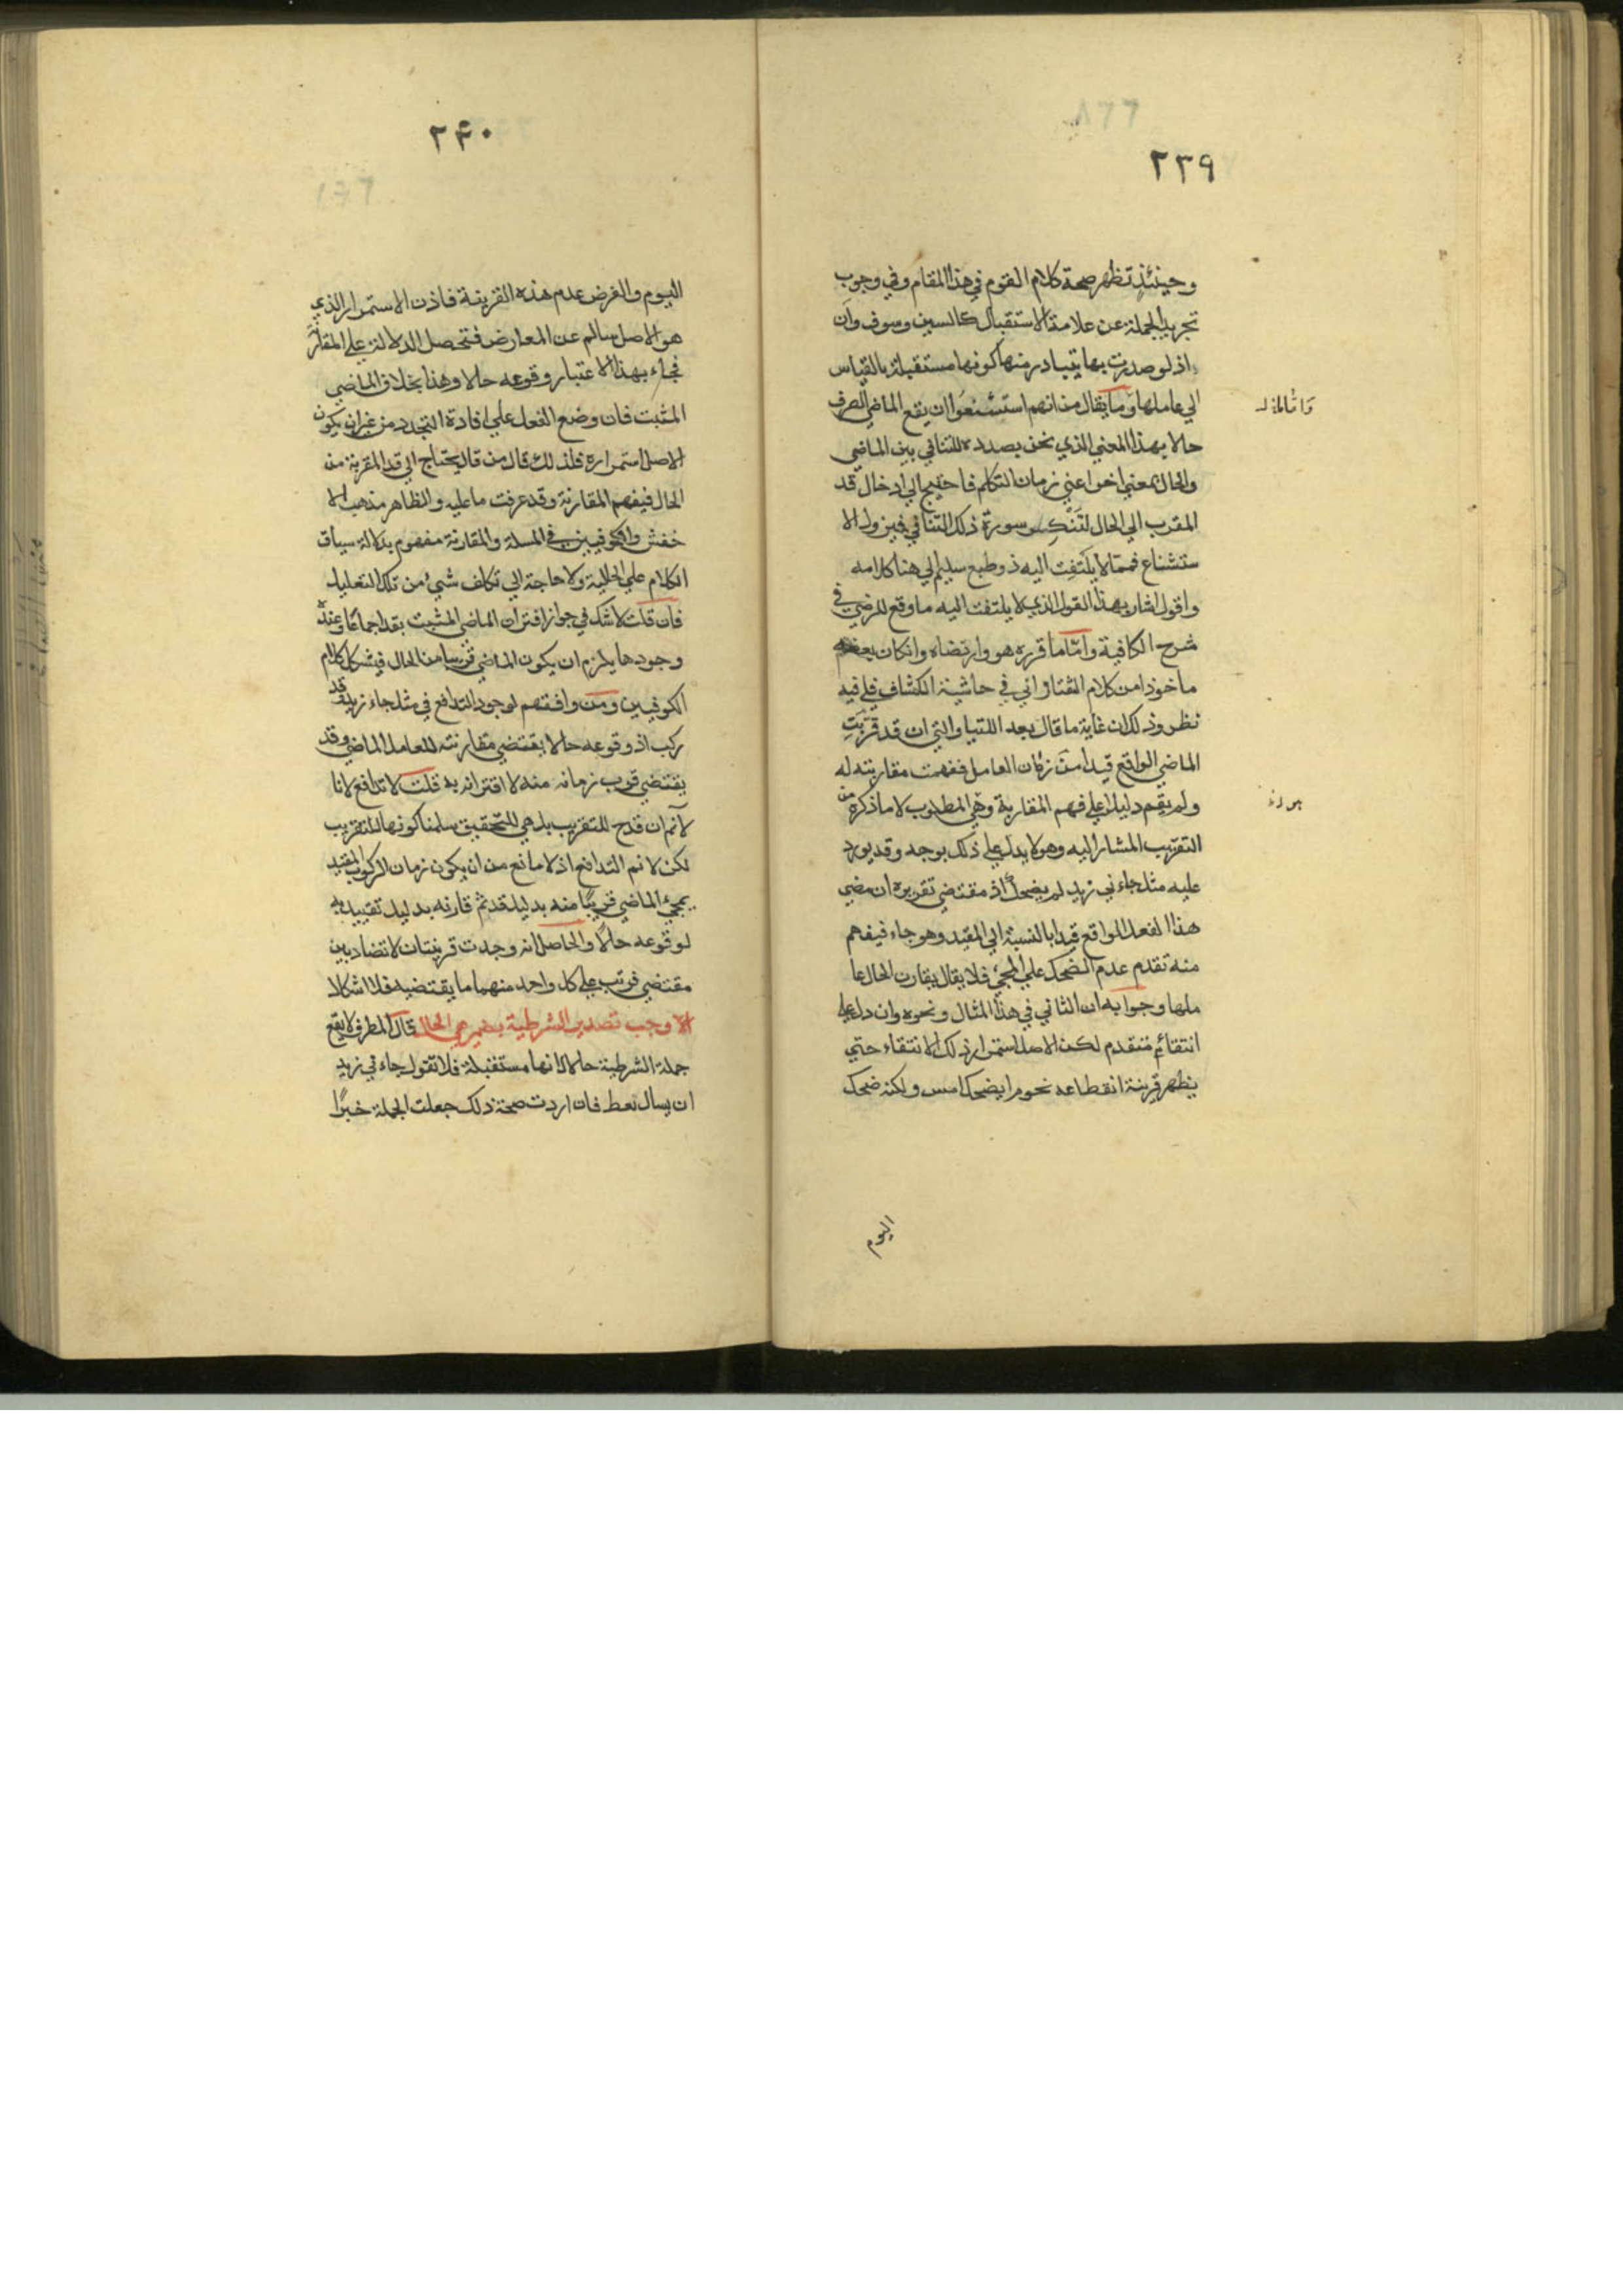 ٢٣٩
وحينئذٍ تظهر صحة كلام القوم في هذا المقام وفي وجوب
تجريد الجملة عن علامة الاستقبال كالسين وسوف وان
اذ لو صدرت بها يتبادر منها كونها مستقبلة بالقياس
الي عاملها وما يقال من انهم استشنعوا ان يقع الماضي الصرف
حالا بهذا المعني الذي نحن بصدده للتنافي بين الماضي
والحال بمعني اخر اعني زمان التكلم فاحتيج الي ادخال قد
المقرب الي الحال لتنكسر سورة ذلك التنافي فيزول الا
ستشناع فمما لا يلتفت اليه ذو طبع سليم الي هنا كلامه
واقول اشار بهذا القول الذي لا يلتفت اليه ما وقع للرضي في
شرح الكافية واما ما قرره هو وارتضاه وان كان بعضه
ماخوذا من كلام التفتازاني في حاشية الكشاف فلي فيه
نظر وذلك ان غاية ما قال بعد اللتيا والتي ان قد قربت
الماضي الواقع قيدا من زمان العامل ففهمت مقارنته له
ولم يقم دليلا علي فهم المقارنة وهي المطلوب لا ما ذكره من
التقريب المشار اليه وهو لا يدل علي ذلك بوجه وقد يورد
عليه مثل جاءني زيد لم يضحك اذ مقتضي تقريره ان مضي
هذا الفعل الواقع قيدا بالنسبة الي المقيد وهو جاء فيفهم
منه تقدم عدم الضحك علي المجئ فلا يقال يقارن الحال عا
ملها وجوابه ان الثاني في هذا المثال ونحوه وان دل علي
انتفائم متقدم لكن الاصل استمرار ذلك الانتفاء حتي
يظهر قرينة انقطاعه نحو لم يضحك امس ولكنه ضحك
اليوم
٢٤٠
اليوم والغرض عدم هذه القرينة فاذن الاستمرار الذي
هو الاصل سالم عن المعارض فتحصل الدلالة علي المقارنة
فجاء بهذا الاعتبار وقوعه حالا وهذا بخلاف الماضي
المثبت فان وضع الفعل علي افادة التجدد من غير ان يكون
الاصل استمراره فلذلك قال من قال يحتاج الي قد المقربة من
الحال فيفهم المقارنة وقد عرفت ما عليه والظاهر مذهب الا
خفش والكوفيين في المسلة والمقارنة مفهوم بدلالة سياق
الكلام علي الحالية ولا حاجة الي تكلف شيئ من تلك التعليل
فان قلت لا شك في جواز اقتران الماضي المثبت بقد اجماعا وعند
وجودها يلزم ان يكون الماضي قريبا من الحال فيشكل كلام
الكوفيين ومن وافقهم لوجود التدافع في مثل جاء زيد قد
ركب اذ وقوعه حالا يقتضي مقارنته للعامل الماضي وقد
يقتضي قرب زمانه منه لا اقترانه به قلت لا تدافع لانا
لا نم ان قد ح للتقريب بل هي للتحقيق سلمنا كونها للتقريب
لكن لا نم التدافع اذ لا مانع من ان يكون زمان الركوب المقيد
بمجئ الماضي قريبا منه بدليل قد ثم قارنه بدليل تقييده به
لوقوعه حالا والحاصل انه وجدت قرينتان لا تضاد بين
مقتضي فرتب علي كل واحد منهما ما يقتضيه فلا اشكالا
الا وجب تصدير الشرطية بضمير هي الحال قال المطرزي لا تقع
جملة الشرطية حالا لانها مستقبلة فلا تقول جاءني زيد
ان يسال يعط فان اردت صحة ذلك جعلت الجملة خبرًا